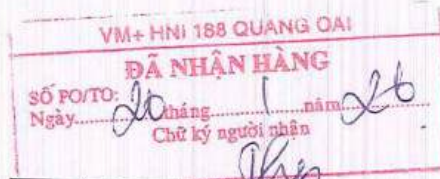 VM+ HNI 188 QUANG OAI
ĐÃ NHẬN HÀNG
SỐ PO/TO:
Ngày 20 tháng 1 năm 26
Chữ ký người nhận